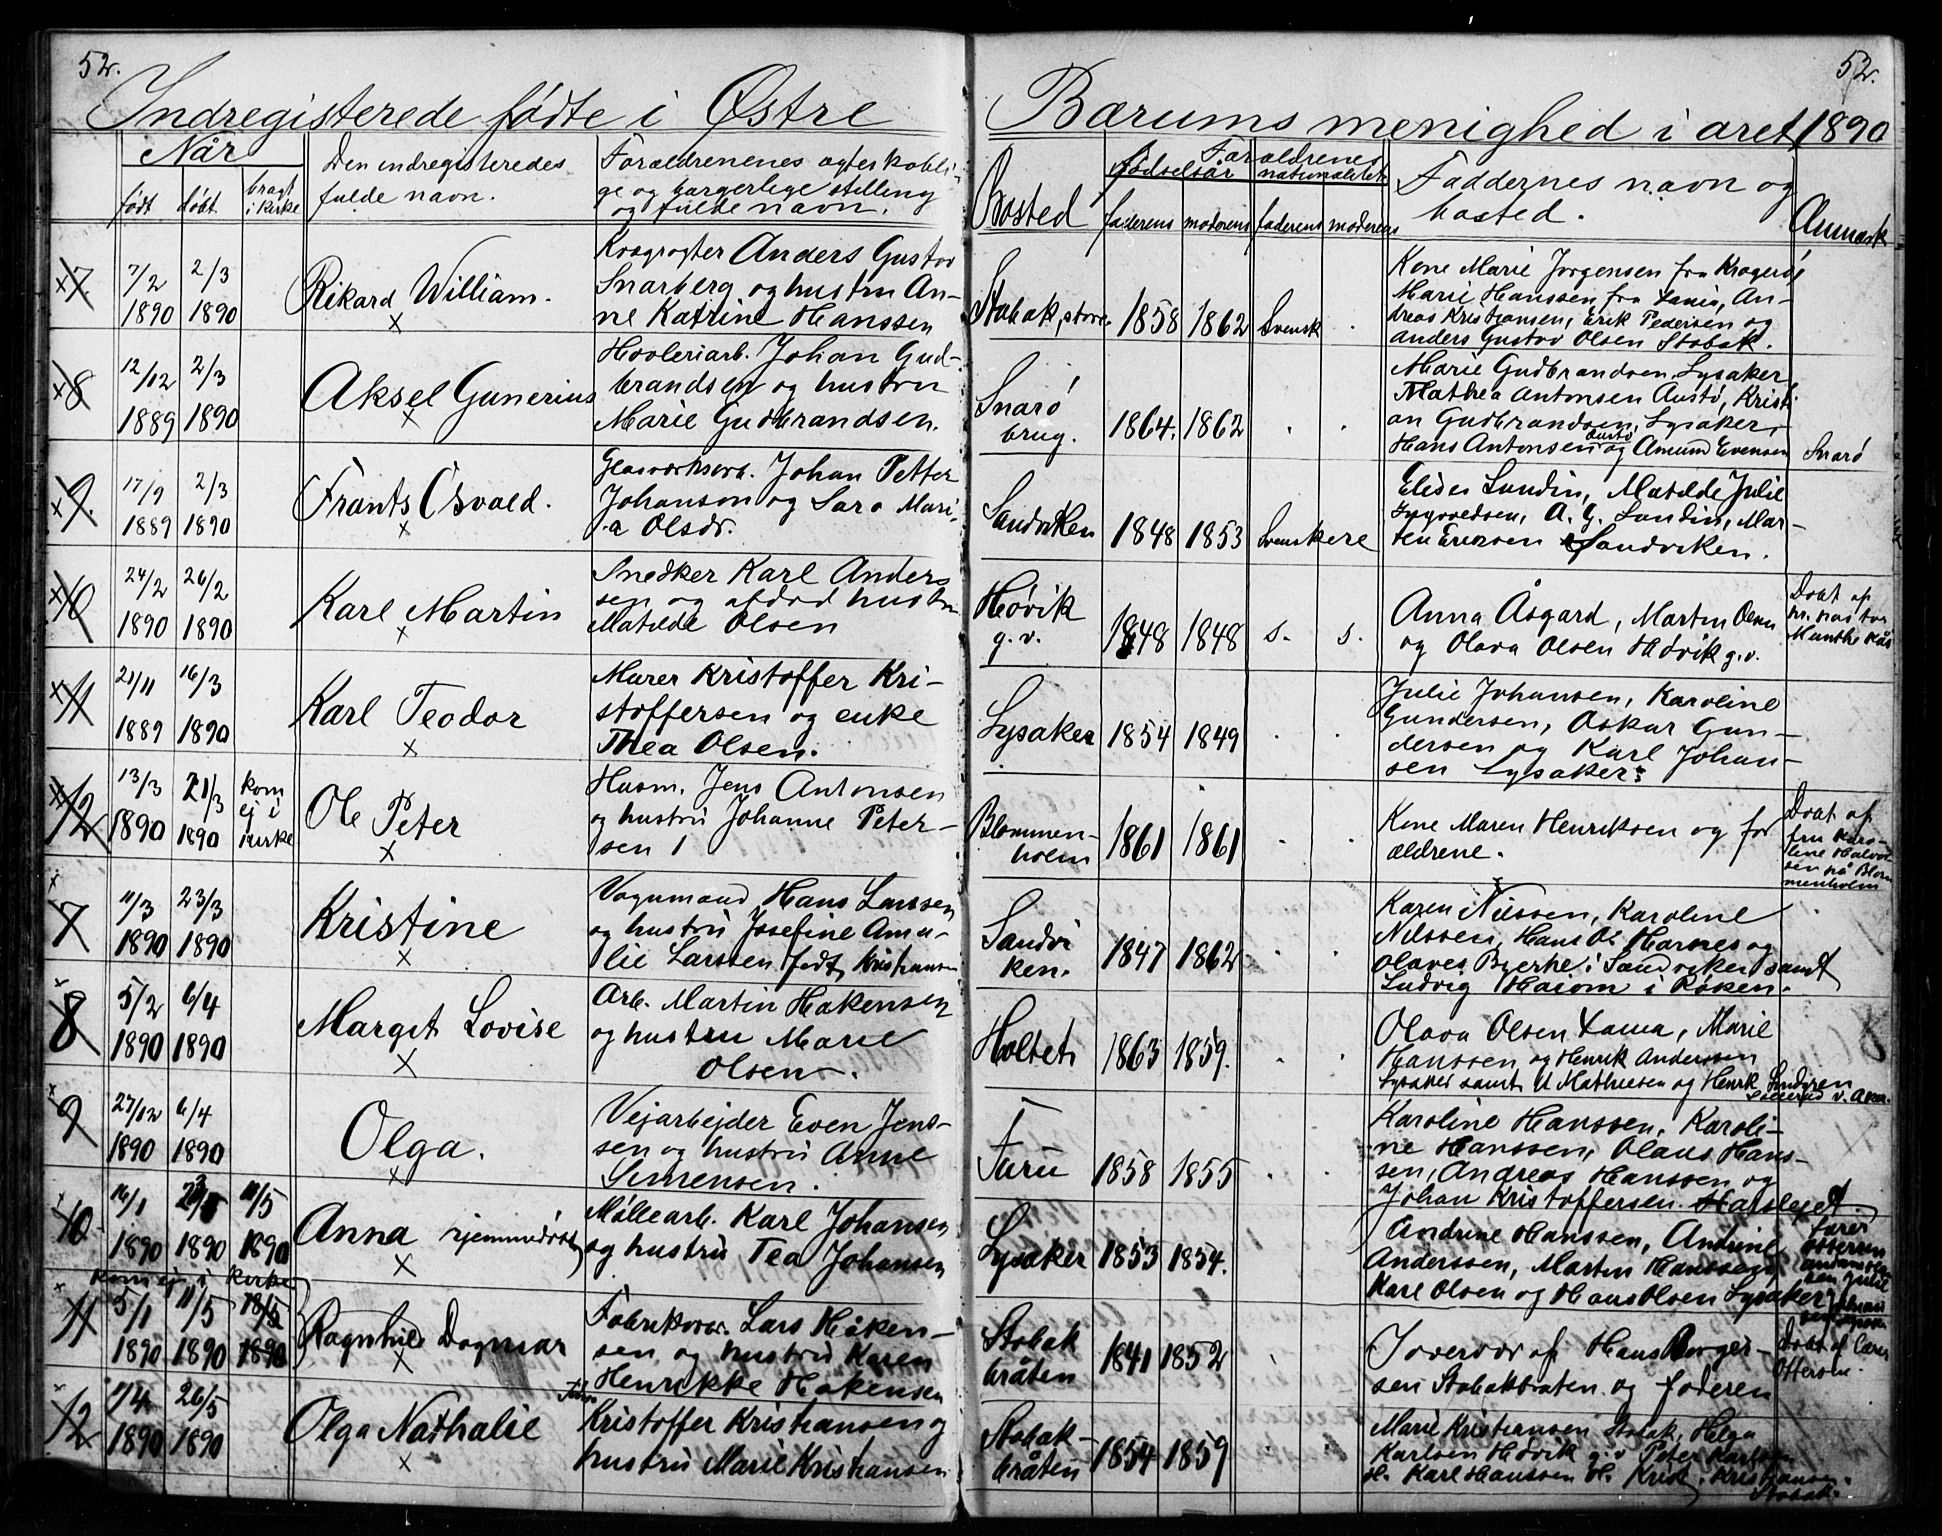 52.
52.
Indregisterede fødte i Østre
Bærums menighed i året 1890
Når
født
døbt
bragt
i kirke
Den indregisteredes
fulde navn.
Forældrenenes ægteskabli-
ge og borgerlige stilling
og fulde navn.
Bosted
Forældrenes
fødselsår
nationalitet
faderens
moderens
faderens
moderens
Faddernes navn og
bosted.
Anmærk
7
7/2
1890
2/3
1890
Rikard William.
Anders Gustav
Snarberg og hustru An-
ne Katrine Hanssen
Stabak, store
1858
1862
Svensk
Kone Marie Jorgensen fra Kragerø,
Marie Hanssen fra An-
dreas Kristiansen, Erik Pedersen og
Anders Gustav Olsen Stabak.
8
12/12
1889
2/3
1890
Aksel Gunerius
Høvleriarb. Johan Gud-
brandsen og hustru
Marie Gudbrandsen.
Snarø
brug.
1864.
1862
Marie Gudbrandsen, Lysaker
Mathea Antonsen Austø, Kristi
an Gudbrandsen, Lysaker,
Hans Antonsen Austø og Amund Evensen
Snarø
9.
17/9
1889
2/3
1890
Frants Osvald.
Glasværksarb. Johan Petter
Johanson og Sara Mari-
a Olsdr.
Sandviken
1848
1853
Svenskere
Elides Lundin, Matilde Julie
A. G. Lundin, Mar-
ten Ericsen Sandviken.
10
24/2
1890
26/2
1890
Karl Martin
Snedker Karl Anders
sen og afdød hustru
Matilde Olsen
Høvik
g.v.
1848
1848
s.
s.
Anna Åsgard, Martin Olsen
og Olava Olsen Høvik g.v.
Døbt af
hr. pastor
Munthe Kås
11
21/11
1889
16/3
1890
Karl Teodor
Murer Kristoffer Kri-
stoffersen og enke
Thea Olsen.
Lysaker
1854
1849
Julie Johansen, Karoline
Gundersen, Oskar Gun-
dersen og Karl Johan-
sen Lysaker.
12
13/3
1890
21/3
1890
kom
ej i
kirke
Ole Peter
Husm. Jens Antonsen
og hustru Johanne Peter-
sen
Blommen-
holm
1861
1861
Kone Maren Henriksen og for
ældrene.
Døbt af
fru Karo-
line Halvor
sen på Blom
menholm
7
11/3
1890
23/3
1890
Kristine
Vognmand Hans Larssen
og hustru Josefine Ama-
lie Larssen født Kristiansen
Sandvi
ken.
1847
1862
Karen Nilssen, Karoline
Nilssen, Hans O. Harnes og
Olaves Bjerke i Sandviken samt
Ludvig i Røken.
8
5/2
1890
6/4
1890
Margit Lovise
Arb. Martin Hakensen
og hustru Marie
Olsen.
Holtet
1863
1859.
Olava Olsen Marie
Hanssen og Henrik Anderssen
Lysaker samt Mathiesen og Henrik Lundgren
Sollerud v. Aker.
9
27/12
1890
6/4
1890
Olga.
Vejarbejder Even Jens-
sen og hustru Anne
Simensen.
Furu
1858
1855
Karoline Hanssen, Karoli-
ne Hanssen, Olaus Hans-
sen, Andreas Hanssen og
Johan Kristoffersen
10
16/1
1890
1890
11/5
1890
Anna hjemmedøbt
Møllearb. Karl Johansen
og hustru Tea Johansen
Lysaker
1853
1854.
Andrine Hanssen, Andrine
Anderssen, Martin Hanssen,
Karl Olsen og Hans Olsen Lysaker
kom ej i kirke
11
5/1
1890
11/5
1890
18/5
1890
Ragnhild Dagmar
Fabrikarb. Lars Håken-
sen og hustru Karen
Henrikke Hakensen
Stabak
bråten
1841
1852
I overvær af Hans Borger-
sen Stabakbraten og faderen
Døbt af
12
1890
26/5
1890
Olga Nathalie
Kristoffer Kristiansen og
hustru Marie Kristiansen
Stabak-
bråten
1854
1859
Marie Kristiansen Stabak, Helga
Karlsen Høvik g.v. Peter Karlsen
H. Karl Hanssen H. Krist. Kristiansen.
Stabak.